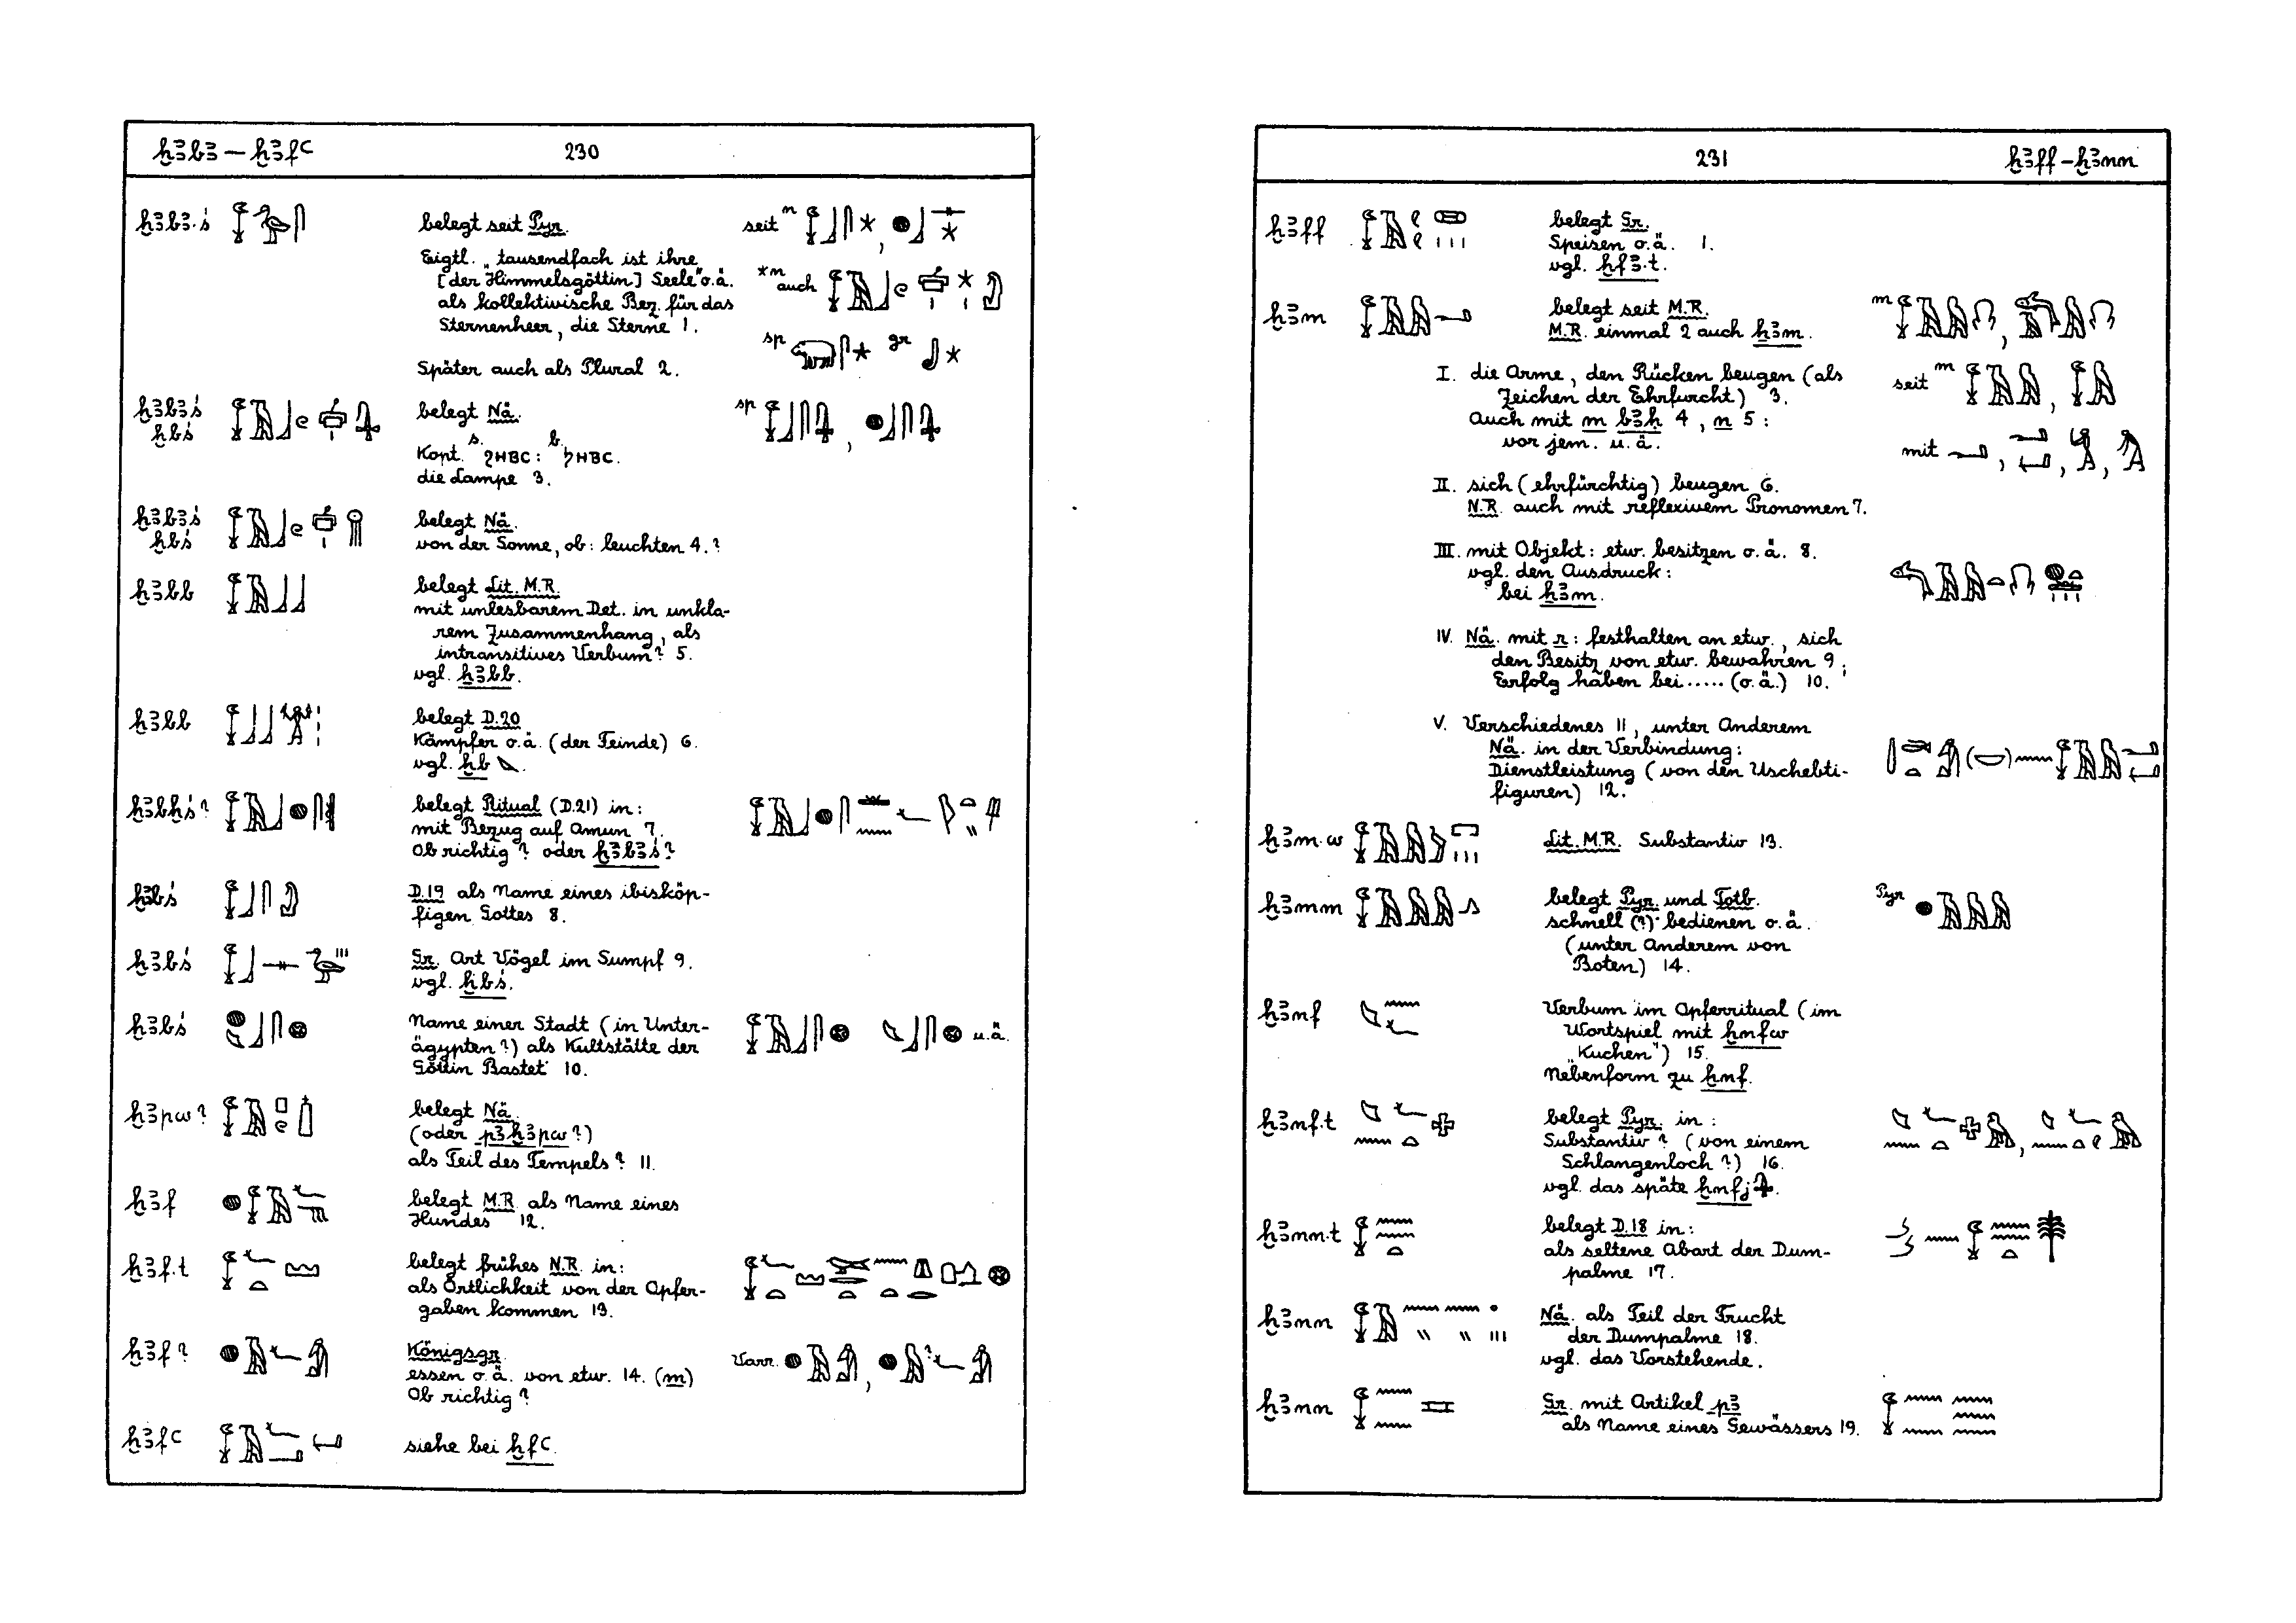 ḫꜣbꜣ — ḫꜣfꜥ 230
ḫꜣbꜣ·ś belegt seit Pyr.
Eigtl. „tausendfach ist ihre
[der Himmelsgöttin] Seele" o.ä.
als kollektivische Bez. für das
Sternenheer, die Sterne 1.
Später auch als Plural 2.
seit n
*n auch
sp gr
ḫꜣbꜣś
ḫbś
belegt Nä.
Kopt. s. ϩⲏⲃⲥ : b. ϧⲏⲃⲥ.
die Lampe 3.
sp
ḫꜣbꜣś
ḫbś
belegt Nä.
von der Sonne, ob: leuchten 4.?
ḫꜣbb belegt Lit. M.R.
mit unlesbarem Det. in unkla-
rem Zusammenhang, als
intransitives Verbum? 5.
vgl. ḫꜣbb.
ḫꜣbb belegt D.20
Kämpfer o.ä. (der Feinde) 6.
vgl. ḫb
ḫꜣbḫś? belegt Ritual (D.21) in:
mit Bezug auf Amun 7.
Ob richtig? oder ḫꜣbꜣś?
ḫꜣbś D.19 als Name eines ibisköp-
figen Gottes 8.
ḫꜣbś Gr. Art Vögel im Sumpf 9.
vgl. ḫibś.
ḫꜣbś Name einer Stadt (in Unter-
ägypten?) als Kultstätte der
Göttin Bastet 10.
u.ä.
ḫꜣpw? belegt Nä.
(oder pꜣ ḫꜣpw?)
als Teil des Tempels? 11.
ḫꜣf belegt M.R. als Name eines
Hundes 12.
ḫꜣf·t belegt frühes N.R. in:
als Örtlichkeit von der Opfer-
gaben kommen 13.
ḫꜣf? Königsgr.
essen o.ä. von etw. 14. (m)
Ob richtig?
Varr.
ḫꜣfꜥ siehe bei ḫfꜥ.
231 ḫꜣff — ḫꜣnn
ḫꜣff belegt Gr.
Speisen o.ä. 1.
vgl. ḫfꜣ·t.
ḫꜣm belegt seit M.R.
M.R. einmal 2 auch ẖꜣm.
m
I. die Arme, den Rücken beugen (als
Zeichen der Ehrfurcht) 3.
Auch mit m bꜣḥ 4, n 5:
vor jem. u.ä.
seit m
mit
II. sich (ehrfürchtig) beugen 6.
N.R. auch mit reflexivem Pronomen 7.
III. mit Objekt: etw. besitzen o.ä. 8.
vgl. den Ausdruck:
bei ẖꜣm.
IV. Nä. mit r: festhalten an etw., sich
den Besitz von etw. bewahren 9;
Erfolg haben bei ..... (o.ä.) 10.
V. Verschiedenes 11, unter Anderem
Nä. in der Verbindung:
Dienstleistung (von den Uschebti-
figuren) 12.
ḫꜣm·w Lit. M.R. Substantiv 13.
ḫꜣmm belegt Pyr. und Totb.
schnell (?) bedienen o.ä.
(unter Anderem von
Boten) 14.
Pyr
ḫꜣnf Verbum im Opferritual (im
Wortspiel mit ḫnfw
„Kuchen") 15.
Nebenform zu ḫnf.
ḫꜣnf·t belegt Pyr. in:
Substantiv? (von einem
Schlangenloch?) 16.
vgl. das späte ḫnfj
ḫꜣnn·t belegt D.18 in:
als seltene Abart der Dum-
palme 17.
ḫꜣnn Nä. als Teil der Frucht
der Dumpalme 18.
vgl. das Vorstehende.
ḫꜣnn Gr. mit Artikel pꜣ
als Name eines Gewässers 19.